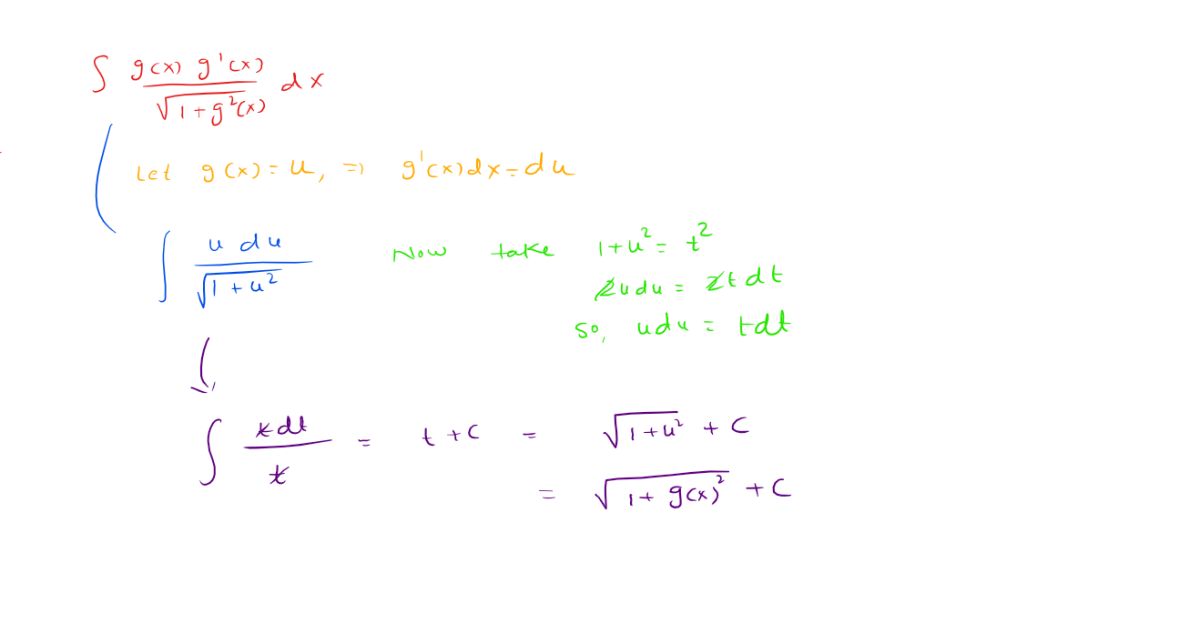 ∫ g(x) g'(x) / √(1+g²(x)) dx
Let g(x) = u, ⇒ g'(x)dx = du
∫ u du / √(1+u²)
Now take 1+u² = t²
2udu = 2tdt
so, udu = tdt
∫ tdt / t = t+c = √(1+u²) + C
= √(1+g(x)²) + C